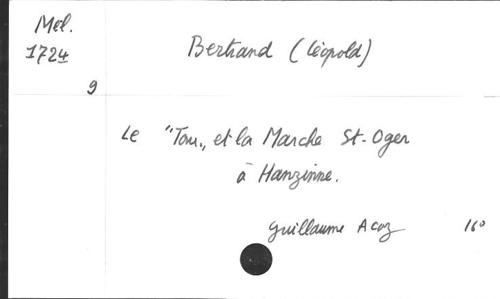 Mél.
1724
9
Bertrand (Léopold)
Le "Tou„ et la Marche St-Oger
à Hanzinne.
Guillaume Acoz 16°